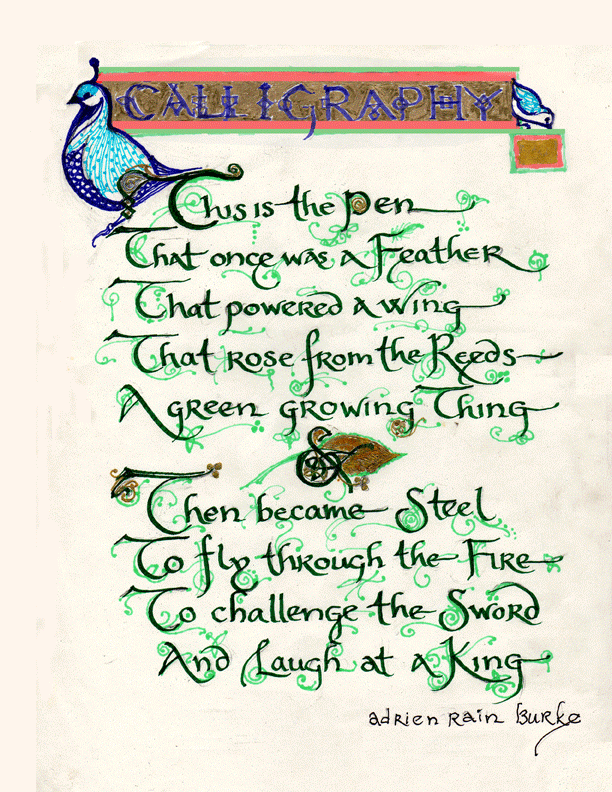 CALLIGRAPHY
This is the Pen
That once was a Feather
That powered a wing
That rose from the Reeds
A green growing Thing
&
Then became Steel
To fly through the Fire
To challenge the Sword
And Laugh at a King
adrien rain Burke